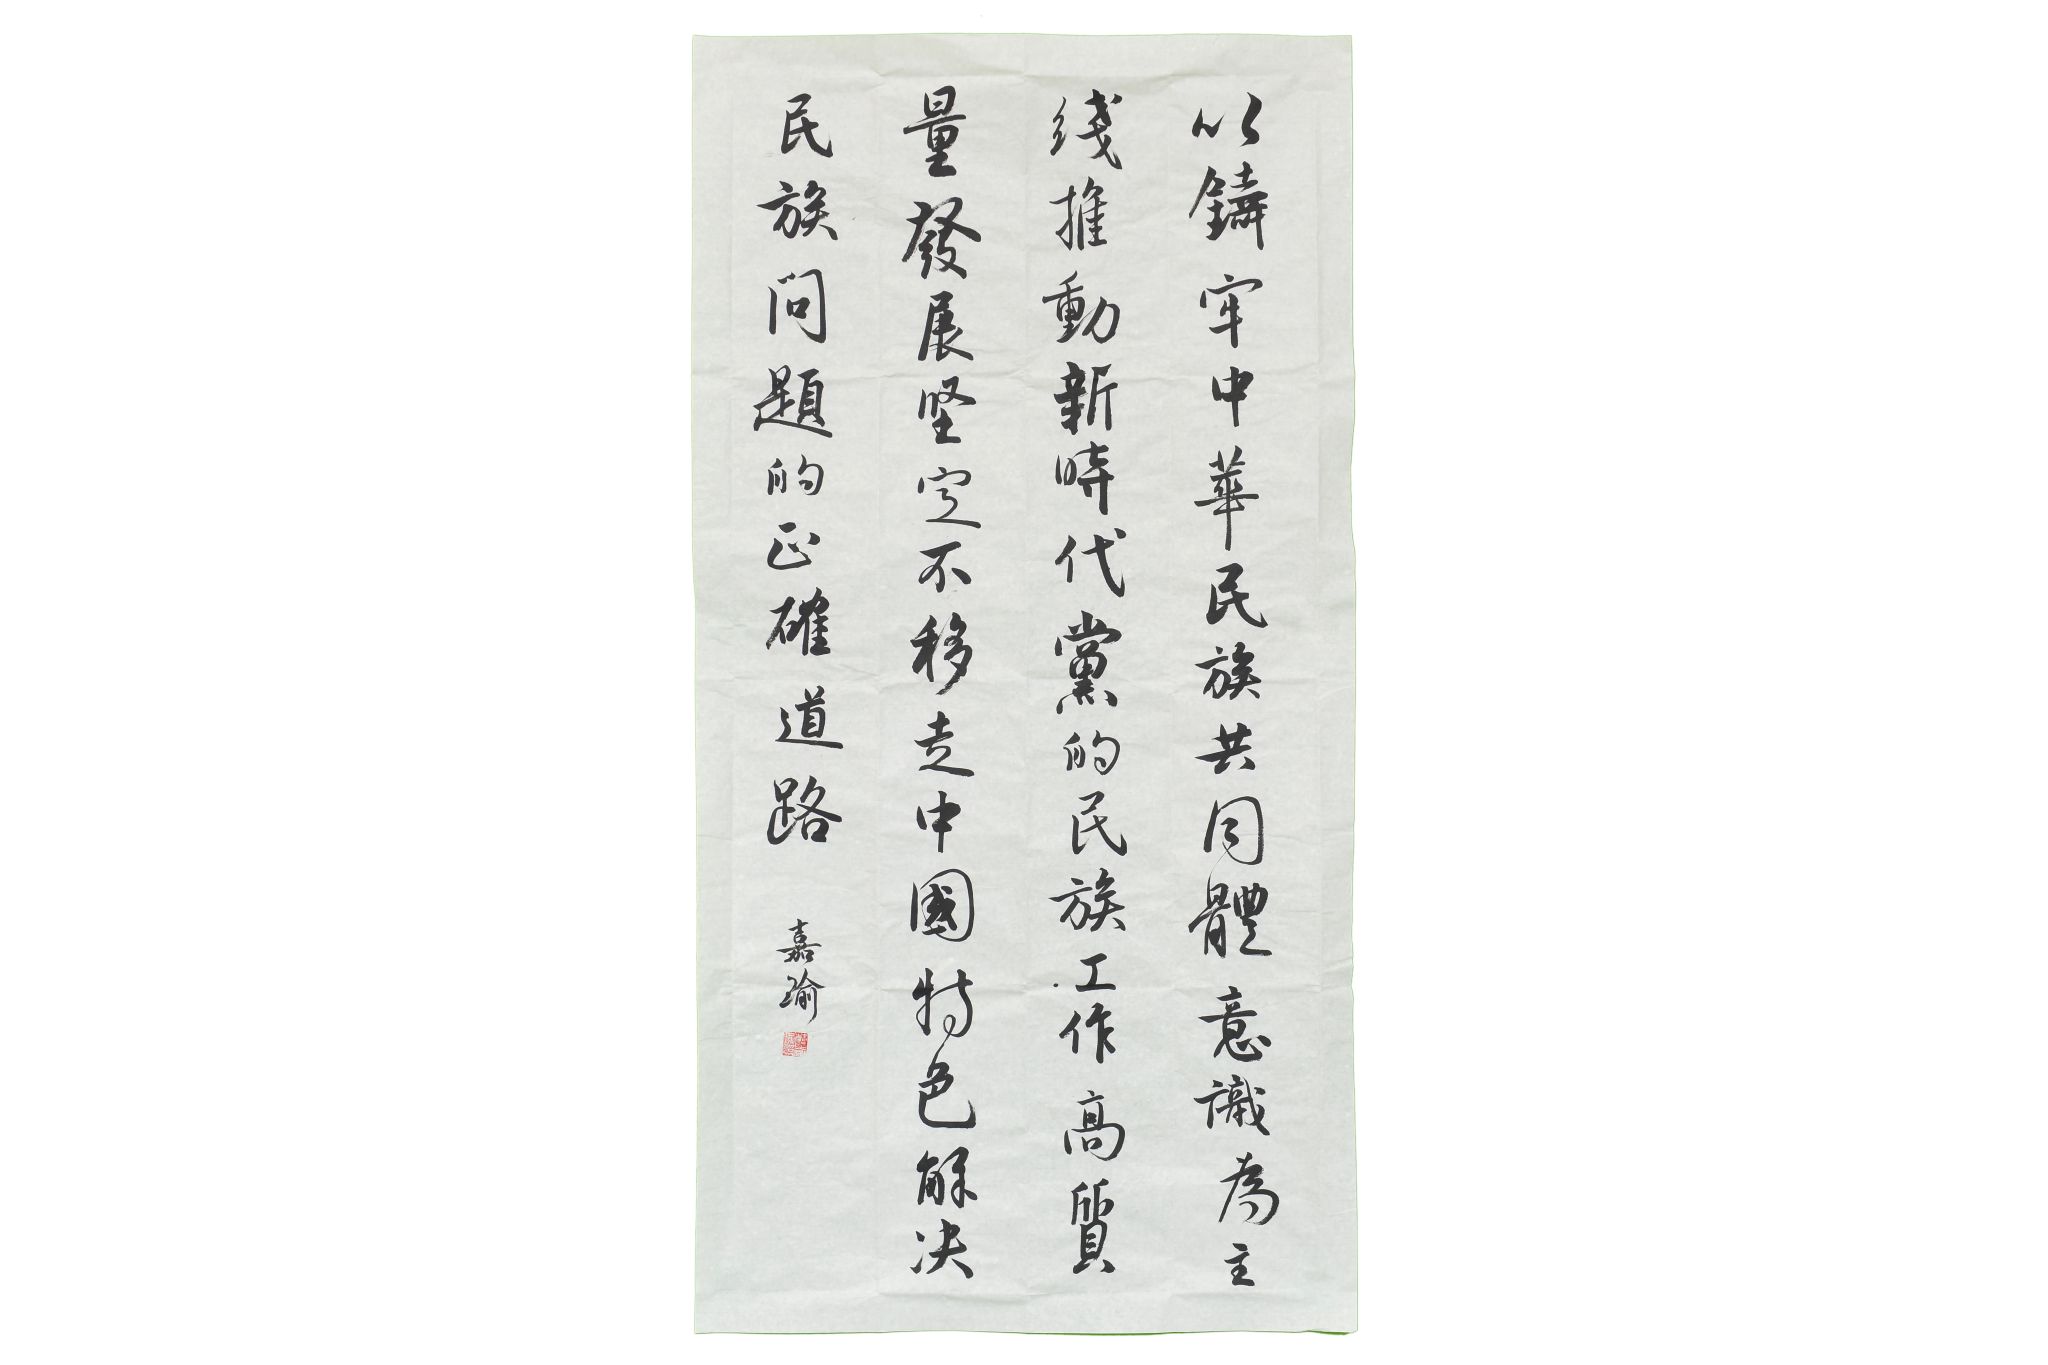 以鑄牢中華民族共同體意識為主
线推動新時代黨的民族工作高質
量發展坚定不移走中國特色解决
民族问題的正確道路
嘉瑜